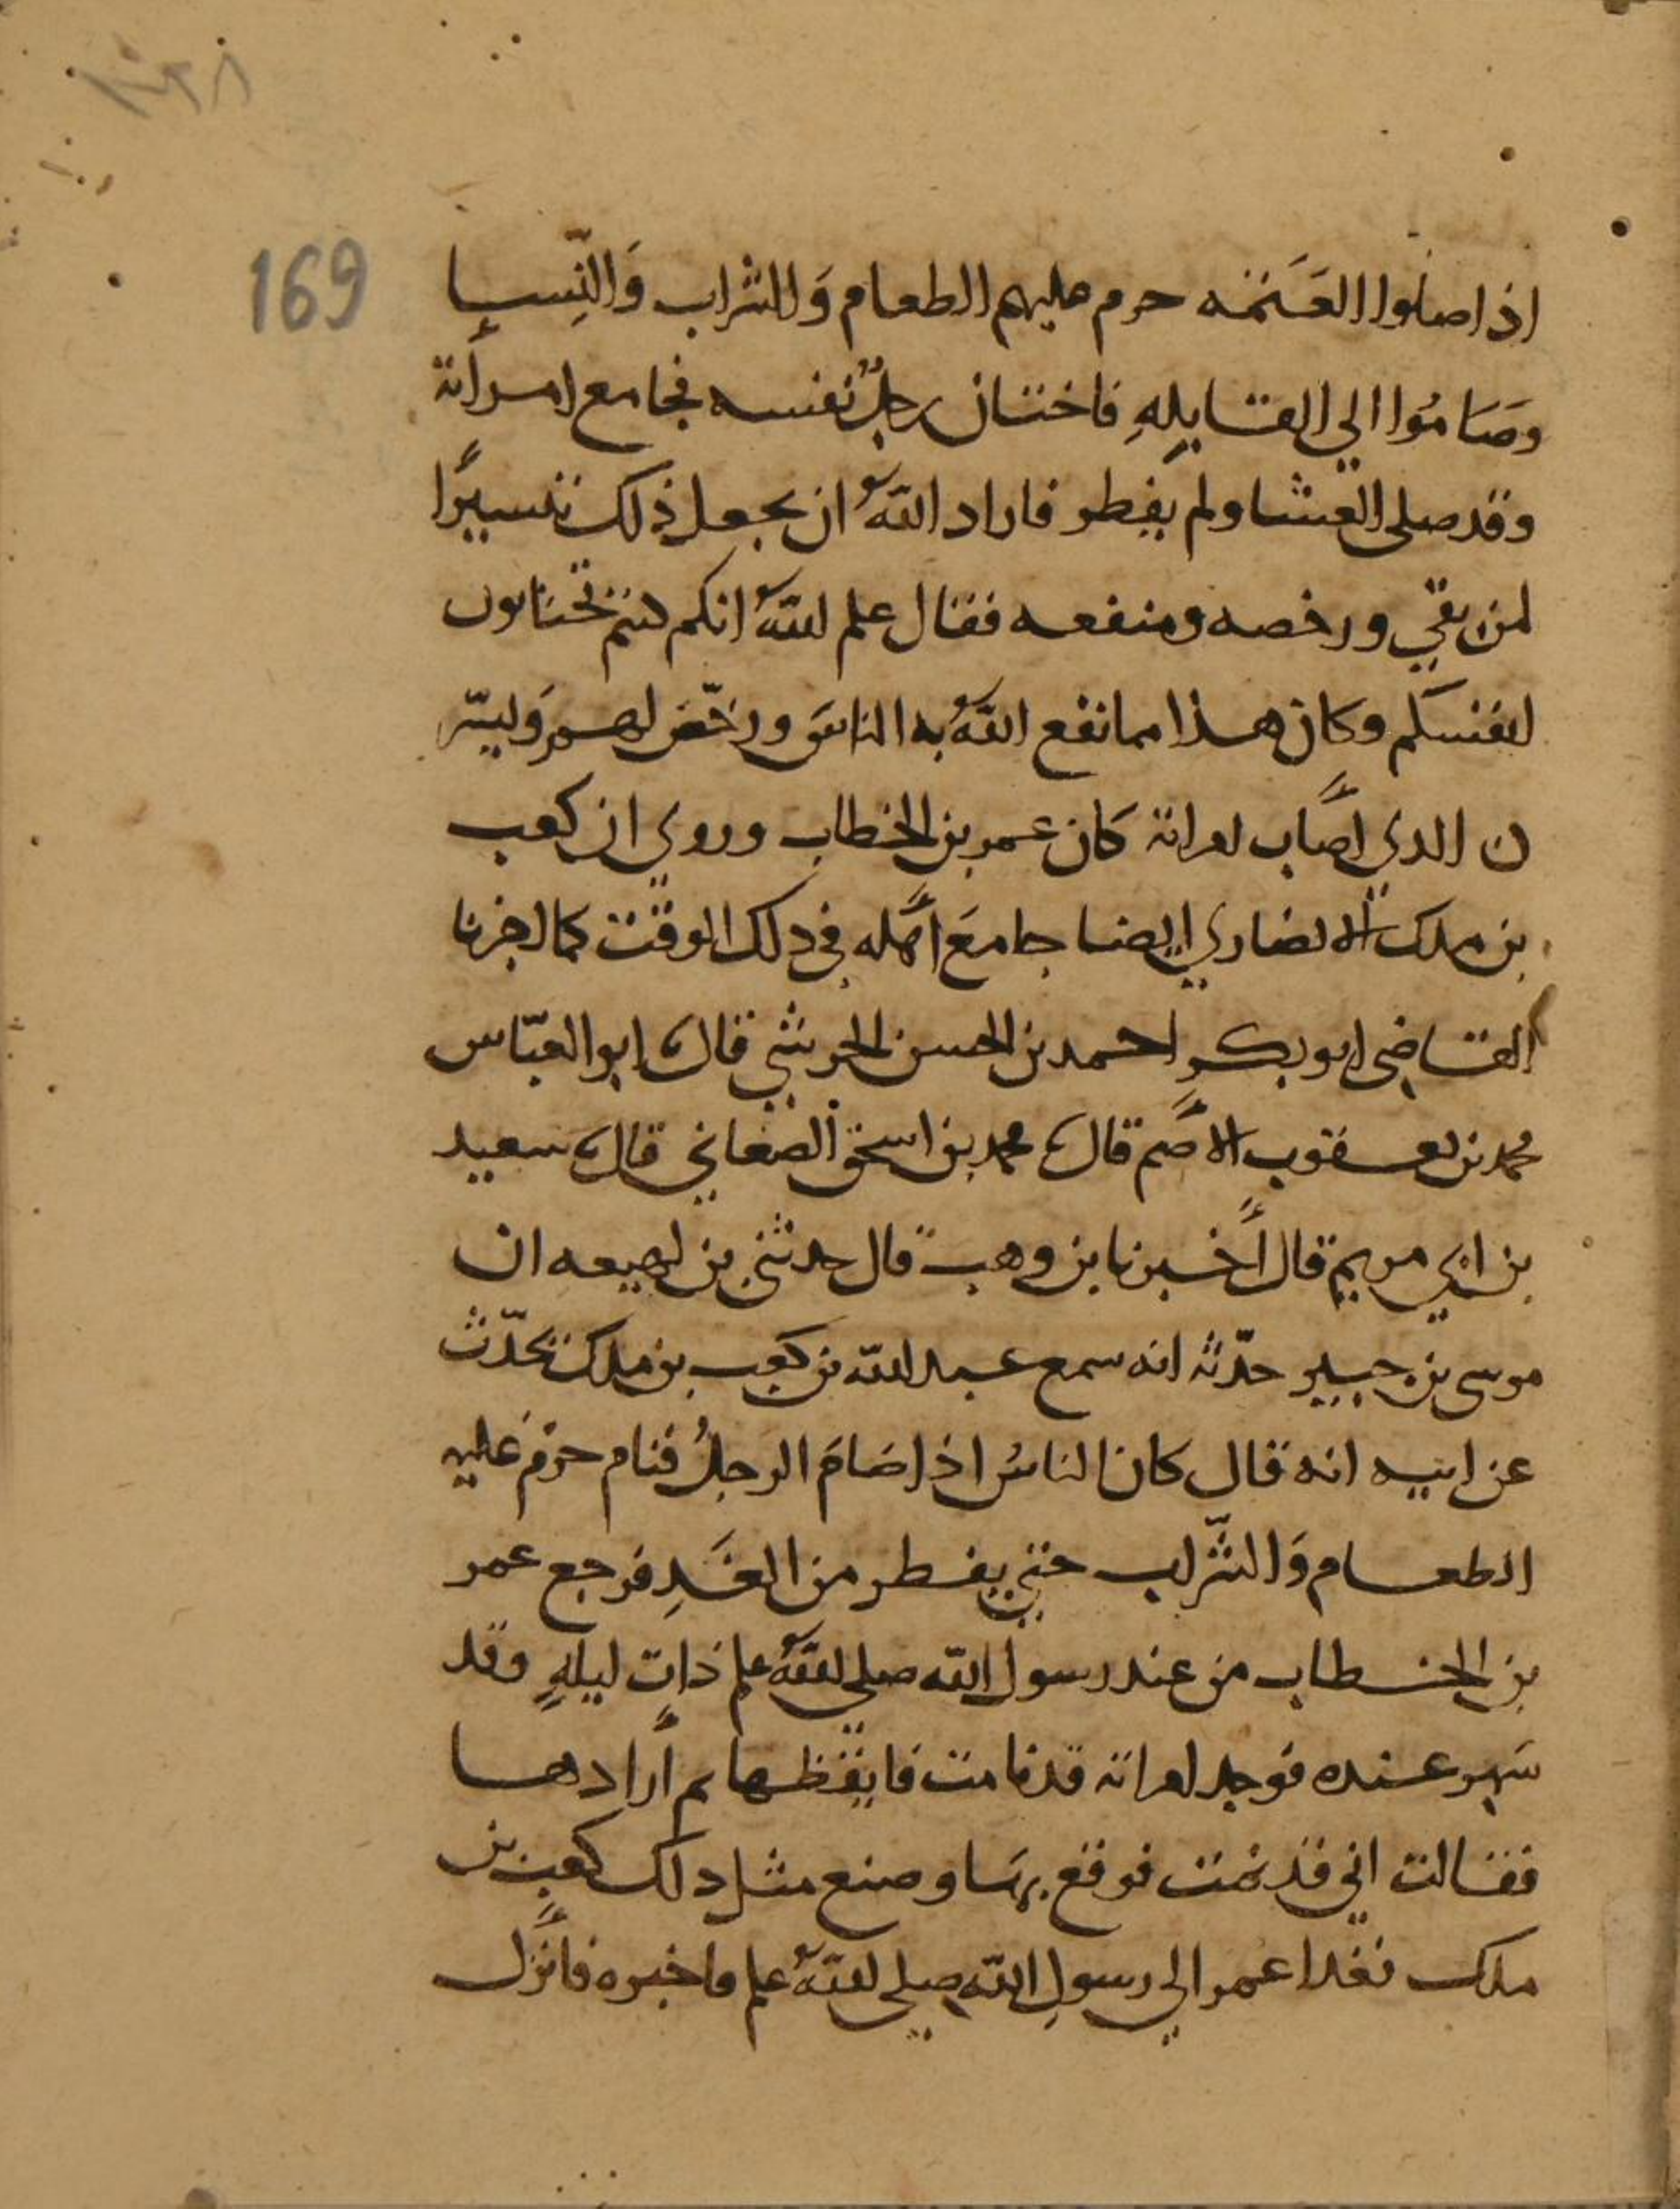 169
اذا صلوا العَتَمَه حرم عليهم الطعام وَالشراب وَالنِّسا
وصَامُوا الي القابلهِ فاختان رجلٌ نفسه فجامع امرأته
وقد صلى العشا ولم يفطر فاراد اللهُ ان يجعل ذلك تيسيرًا
لمن بقي ورخصه ومنفعه فقال علم اللهُ انكم كنتم تختانون
انفسكم وكان هذا مما نفع اللهُ به الناسَ ورخّص لهم وَيسّر
ن الدي اصَاب امراته كان عمر بن الخطاب وروي ان كعب
بن ملك الانصاري ايضا جامعَ اهله في دلك الوقت كما اخبرنا
القاضي ابو بكرٍ احمد بن الحسن الحرشي قال ابو العبّاس
محمد بن يعقوب الاصم قال محمد بن اسحق الصغاني قال سعيد
بن ابي مريم قال أخبرنا بن وهب قال حدثني بن لهيعه ان
موسى بن جبير حدّثه انه سمع عبد الله بن كعب بن ملك يحدّث
عن ابيه انه قال كان الناسُ اذا صَامَ الرجلُ فنام حرّمَ عليه
الطعام وَالشّراب حتي يفطر من الغَدِ فرجع عمر
بن الخطاب من عند رسول الله صلي اللهُ علم ذات ليلهٍ وقد
سَهِر عنده فوجد امراته قد نامت فايقظها ثم أرادها
فقالت اني قد نمت فوقع بهَا وصنع مثل دلك كعب بن
ملك فغدا عمر الي رسولِ اللهِ صلي اللهُ علم فاخبره فانزل